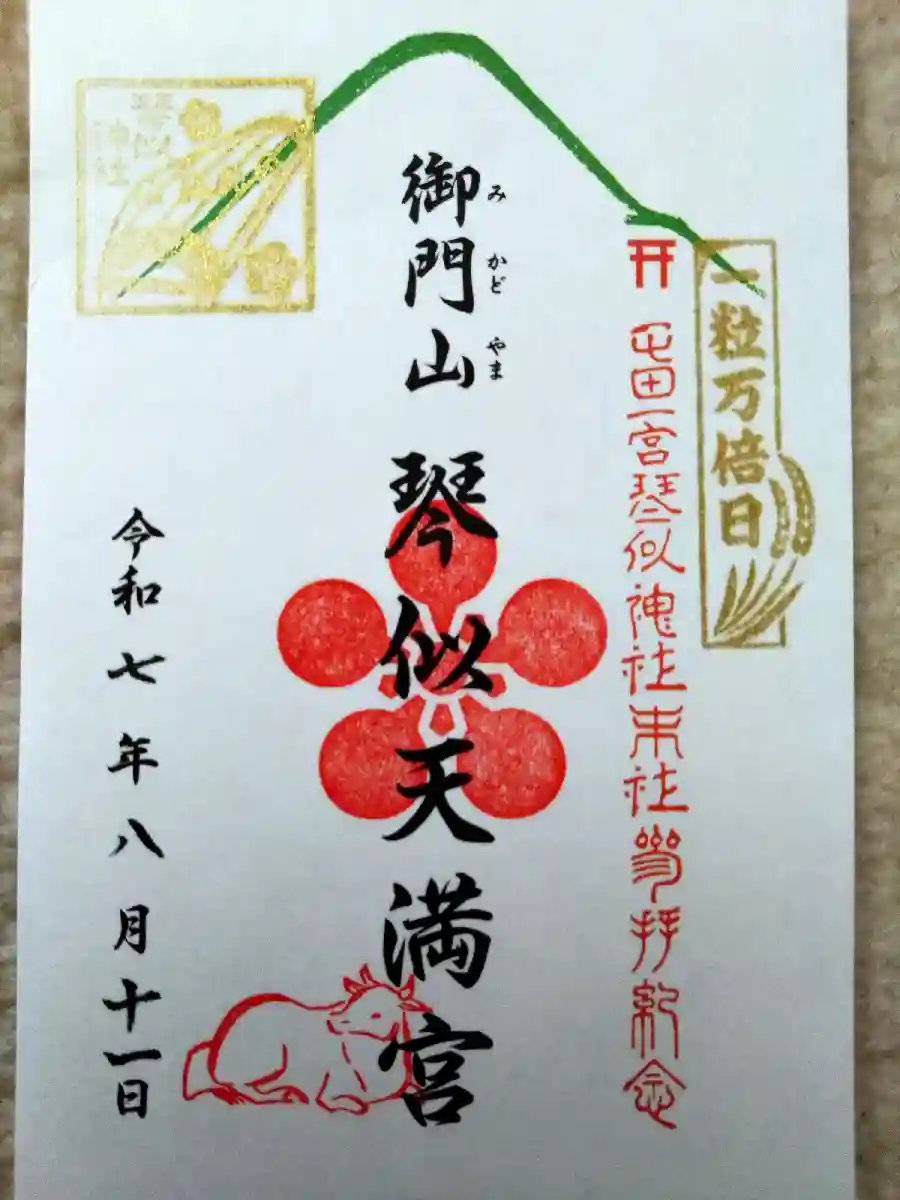 一粒万倍日
屯田一宮琴似神社末社参拝紀念
御門山 琴似天満宮
み かど やま
琴似
神社
令和七年八月十一日